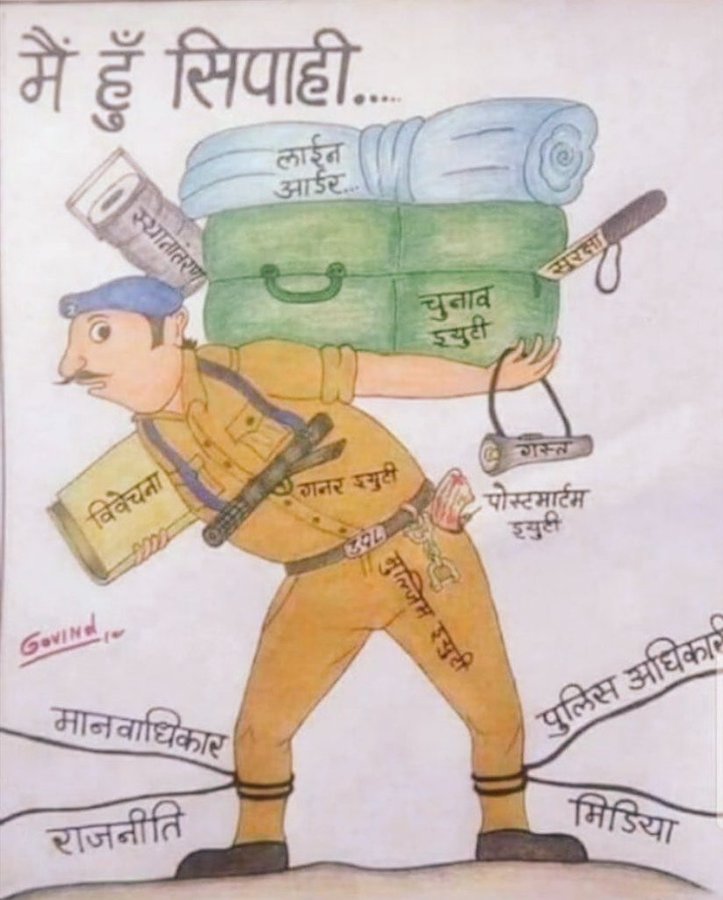 मैं हुँ सिपाही.....
लाईन
आर्डर...
स्थानांतरण
सुरक्षा
चुनाव
ड्युटी
गस्त
विवेचना
गनर ड्युटी
पोस्टमार्टम
ड्युटी
उ0प्र0
मुल्जिम ड्युटी
GOVIND
पुलिस अधिकारी
मानवाधिकार
राजनीति
मिडिया